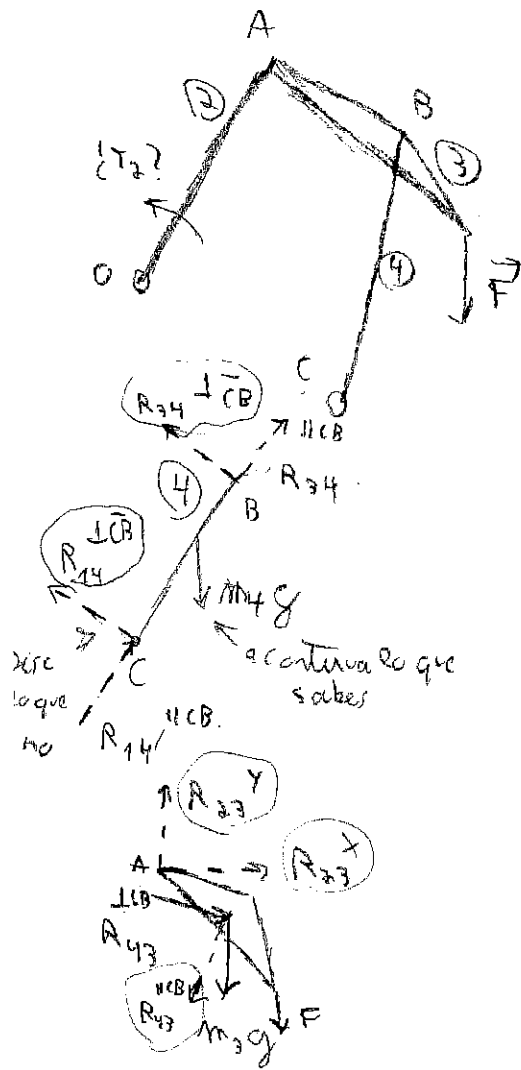 A
②
B
③
¿T₂?
O
④
F⃗
C
R₃₄ ⊥C̅B̅
||CB
R₃₄
④
B
R₁₄ ⊥C̅B̅
m₄g
a continua lo que
sabes
C
lo que
no
R₁₄ ||CB.
R₂₃ʸ
A
R₂₃ˣ
⊥CB
R₄₃
R₄₃ ||CB
m₃g
F